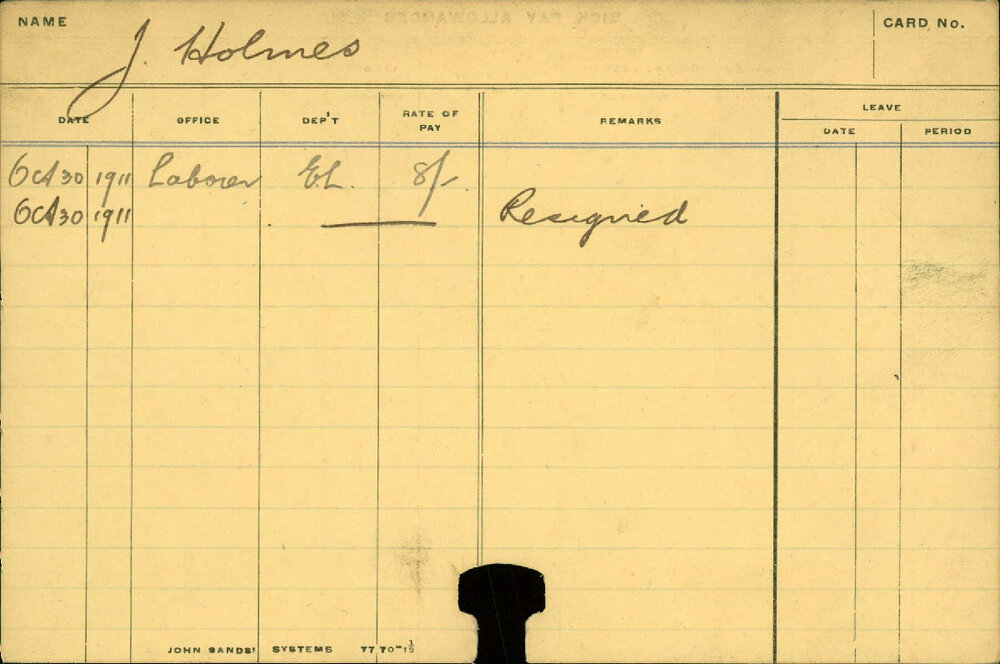 NAME J. Holmes CARD No.
DATE OFFICE DEP'T RATE OF PAY REMARKS LEAVE
DATE PERIOD
Oct 30 1911 Laborer E.L. 8/-
Oct 30 1911 Resigned
JOHN SANDS' SYSTEMS 7770-1½